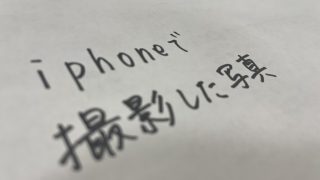 iphoneで
撮影した写真